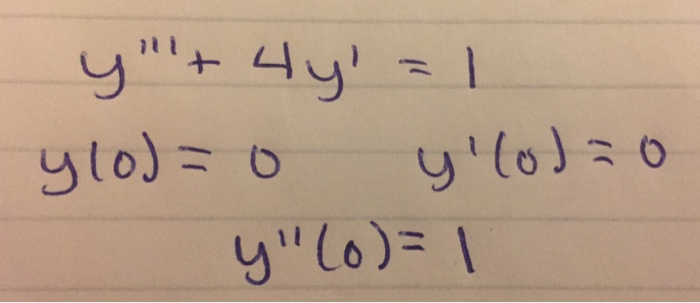 y''' + 4y' = 1
y(0) = 0 y'(0) = 0
y''(0) = 1